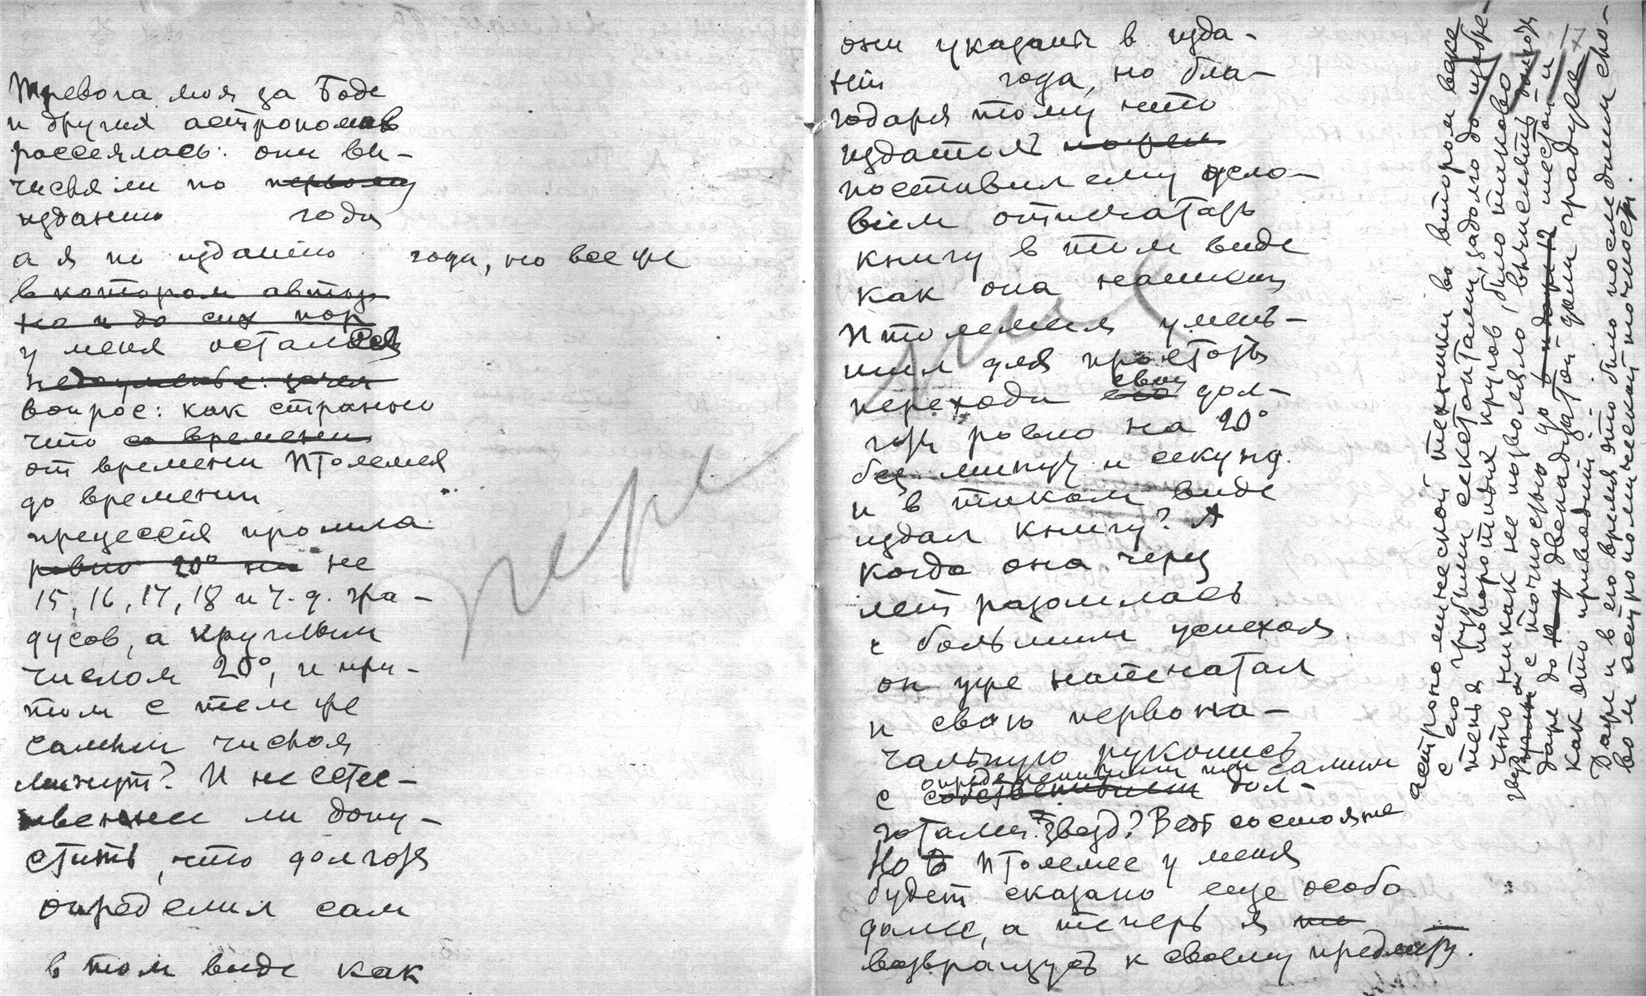 Тревога моя за Боде
и других астрономов
рассеялась: они вы-
числяли по первому
изданию года
а я по изданию года, но все же
в котором автор
но и до сих пор
у меня остался
недоуменье: зачем
вопрос: как странно
что со времени
от времени Птолемея
до времени
прецессия прошла
ровно 20° на не
15, 16, 17, 18 и т. д. гра-
дусов, а круглым
числом 20°, и при-
том с тем же
самым числом
минут? И не естес-
твеннее ли допу-
стить, что долготы
определил сам
в том виде как
они указаны в изда-
нии года, но бла-
годаря тому что
издатель
поставил ему усло-
вием отпечатать
книгу в том виде
как она написана
Птолемеем умень-
шил для простоты
свои
перехода его дол-
готы ровно на 20°
без минут и секунд
и в таком виде
издал книгу? А
когда она через
лет разошлась
с большим успехом
он уже напечатал
и свою первона-
чальную рукопись
определенными им самим
с собственными дол-
готами звезд? Ведь состояние
Но о Птолемее у меня
будет сказано еще особо
далее, а теперь я
возвращусь к своему предмету.
17
астрономической техники во втором веке
с его грубыми секстантами, задолго до изобре-
тенья поворотных кругов, было таково
что никак не позволяло вычислять долготы
звезд с точностью до минут и
даже до двенадцатой доли градуса
как это приводит.
Даже и в его время это было последним сло-
вом астрономической точности.